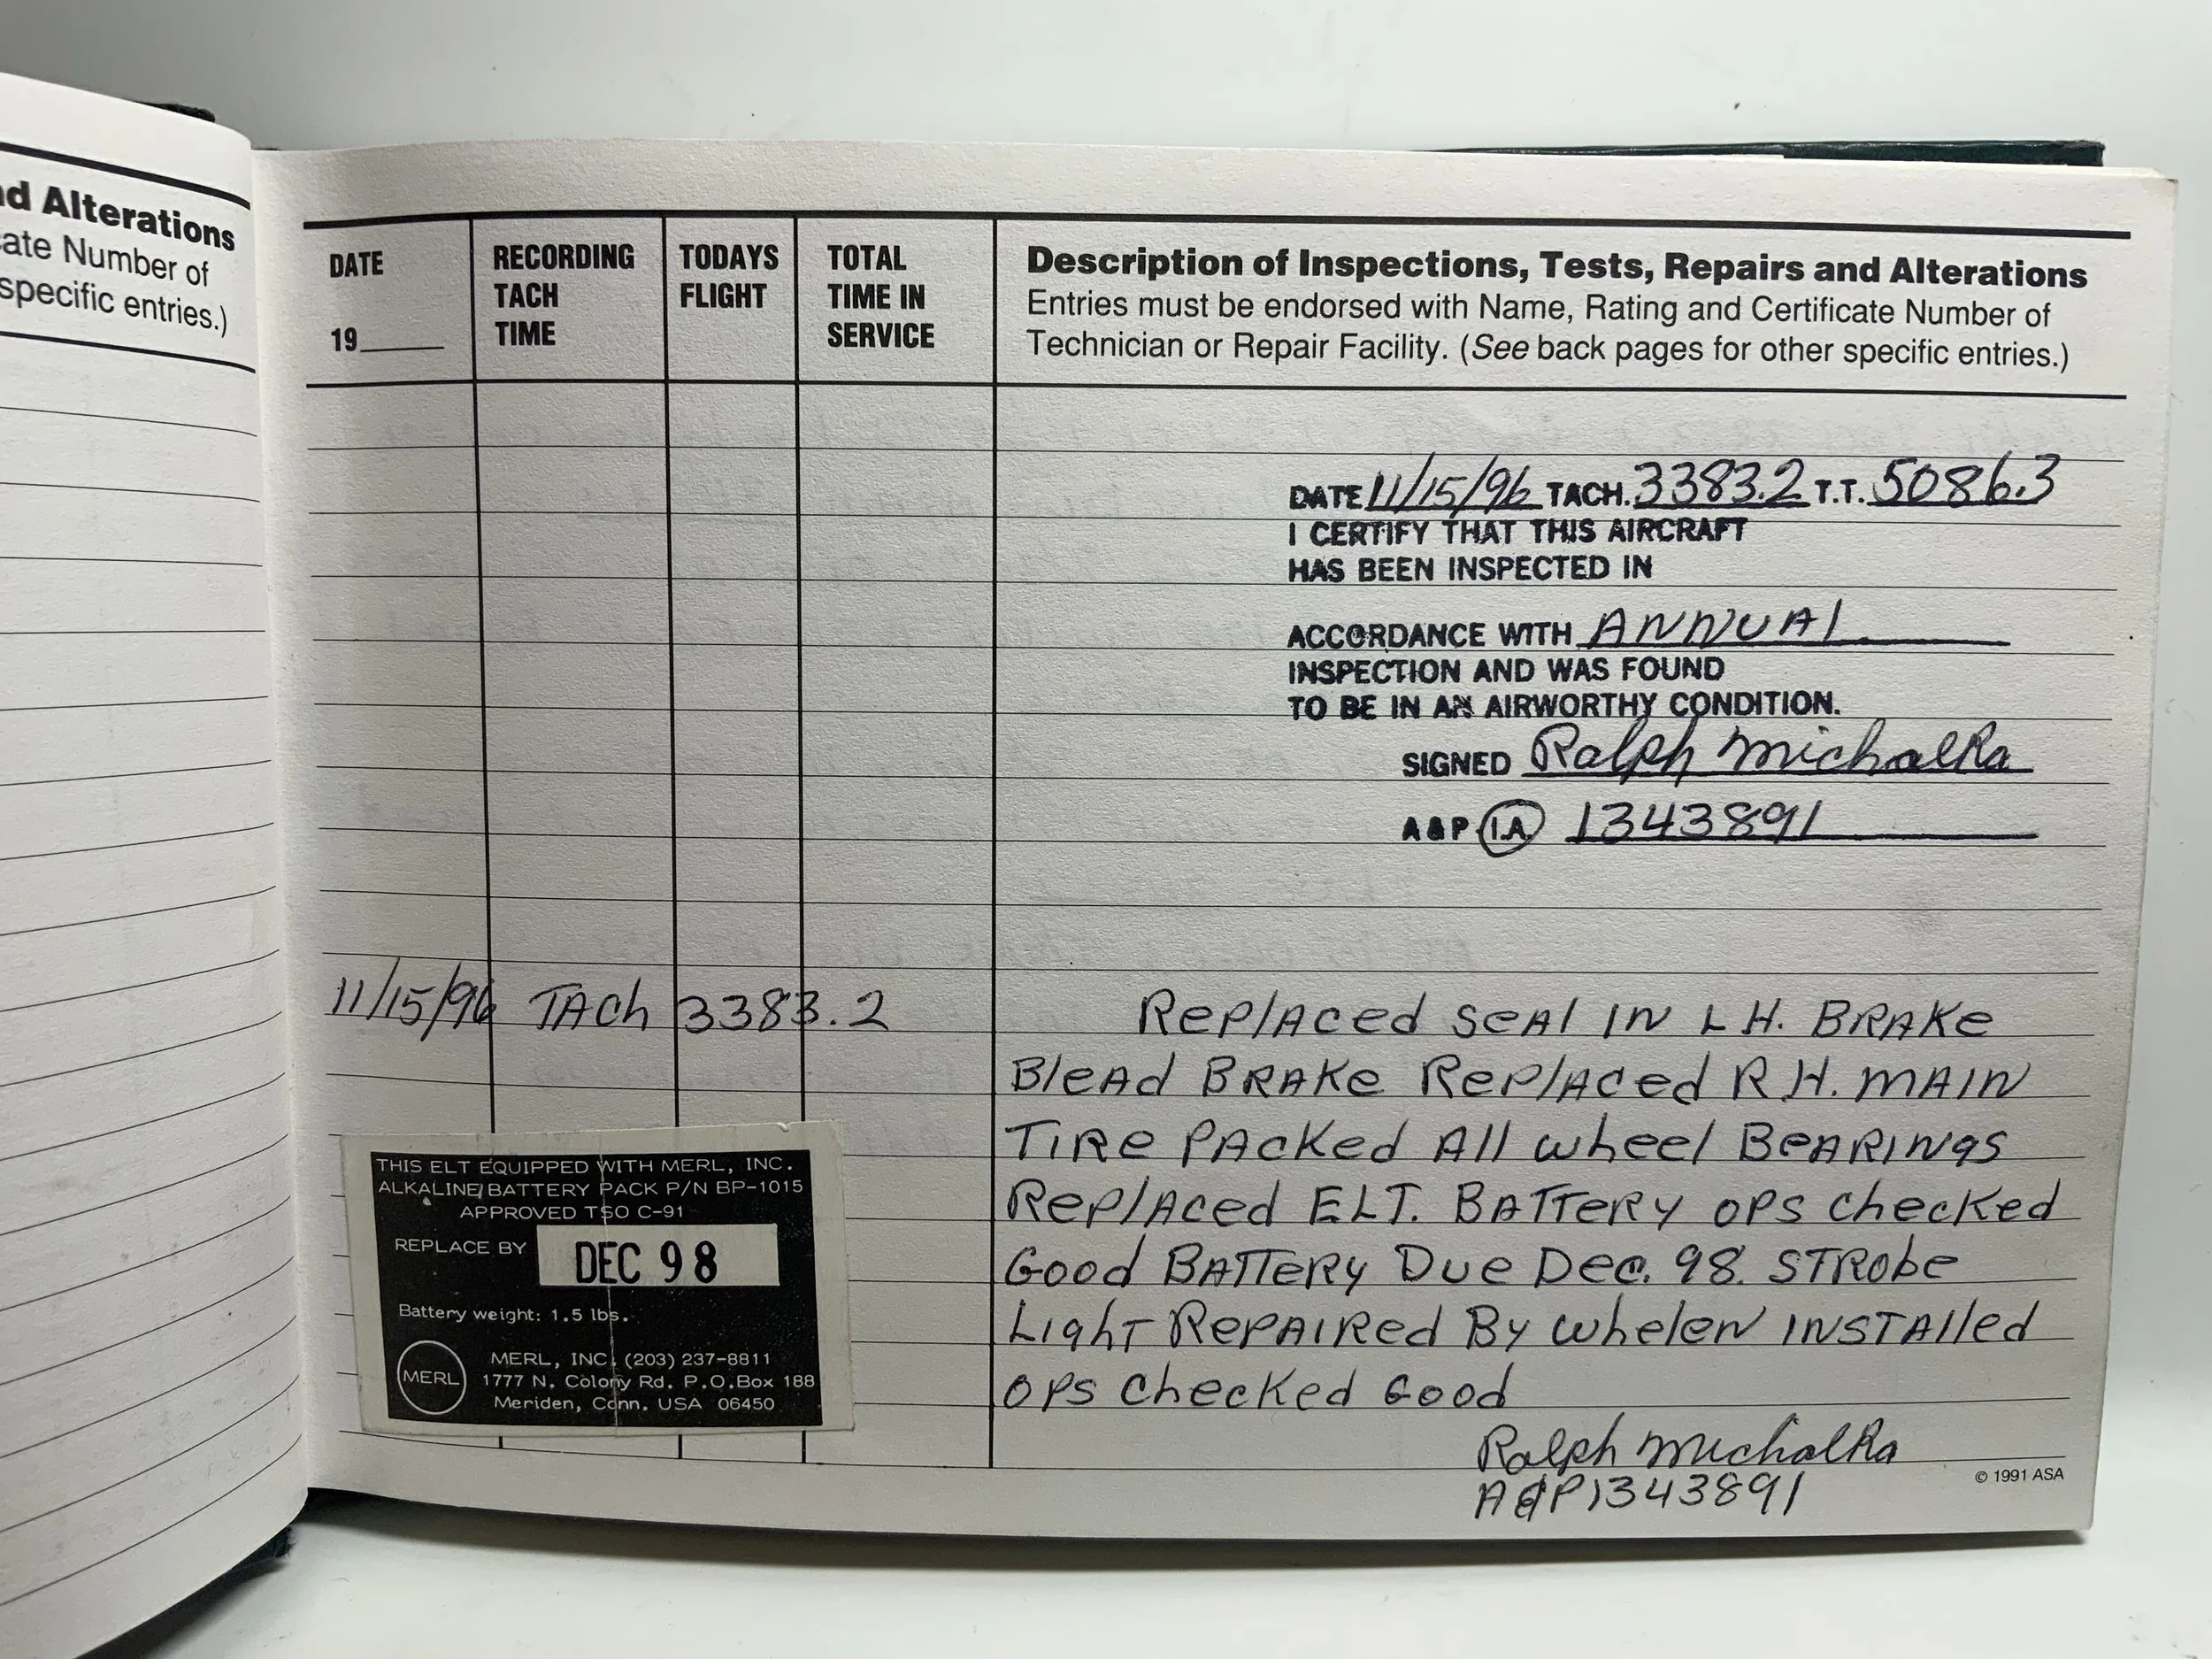 nd Alterations
cate Number of
specific entries.)
DATE
19____
RECORDING
TACH
TIME
TODAYS
FLIGHT
TOTAL
TIME IN
SERVICE
Description of Inspections, Tests, Repairs and Alterations
Entries must be endorsed with Name, Rating and Certificate Number of
Technician or Repair Facility. (See back pages for other specific entries.)
DATE 11/15/96 TACH. 3383.2 T.T. 5086.3
I CERTIFY THAT THIS AIRCRAFT
HAS BEEN INSPECTED IN
ACCORDANCE WITH ANNUAl
INSPECTION AND WAS FOUND
TO BE IN AN AIRWORTHY CONDITION.
SIGNED Ralph Michalka
A&P I.A. 1343891
11/15/96 TACh 3383.2 RePlACed seAl IN L H. BRAKe
BleAd BRAKe RePlACed R H. MAIN
TIRe PACKed All wheel BeARINgs
RePlACed ELT. BATTeRY OPs CheCKed
Good BATTeRY Due Dec. 98. STRobe
LighT RePAIRed By Whelen INSTAlled
OPs CheCKed Good
Ralph Michalka
A&P 1343891
THIS ELT EQUIPPED WITH MERL, INC.
ALKALINE BATTERY PACK P/N BP-1015
APPROVED TSO C-91
REPLACE BY DEC 98
Battery weight: 1.5 lbs.
MERL
MERL, INC. (203) 237-8811
1777 N. Colony Rd. P.O.Box 188
Meriden, Conn. USA 06450
© 1991 ASA